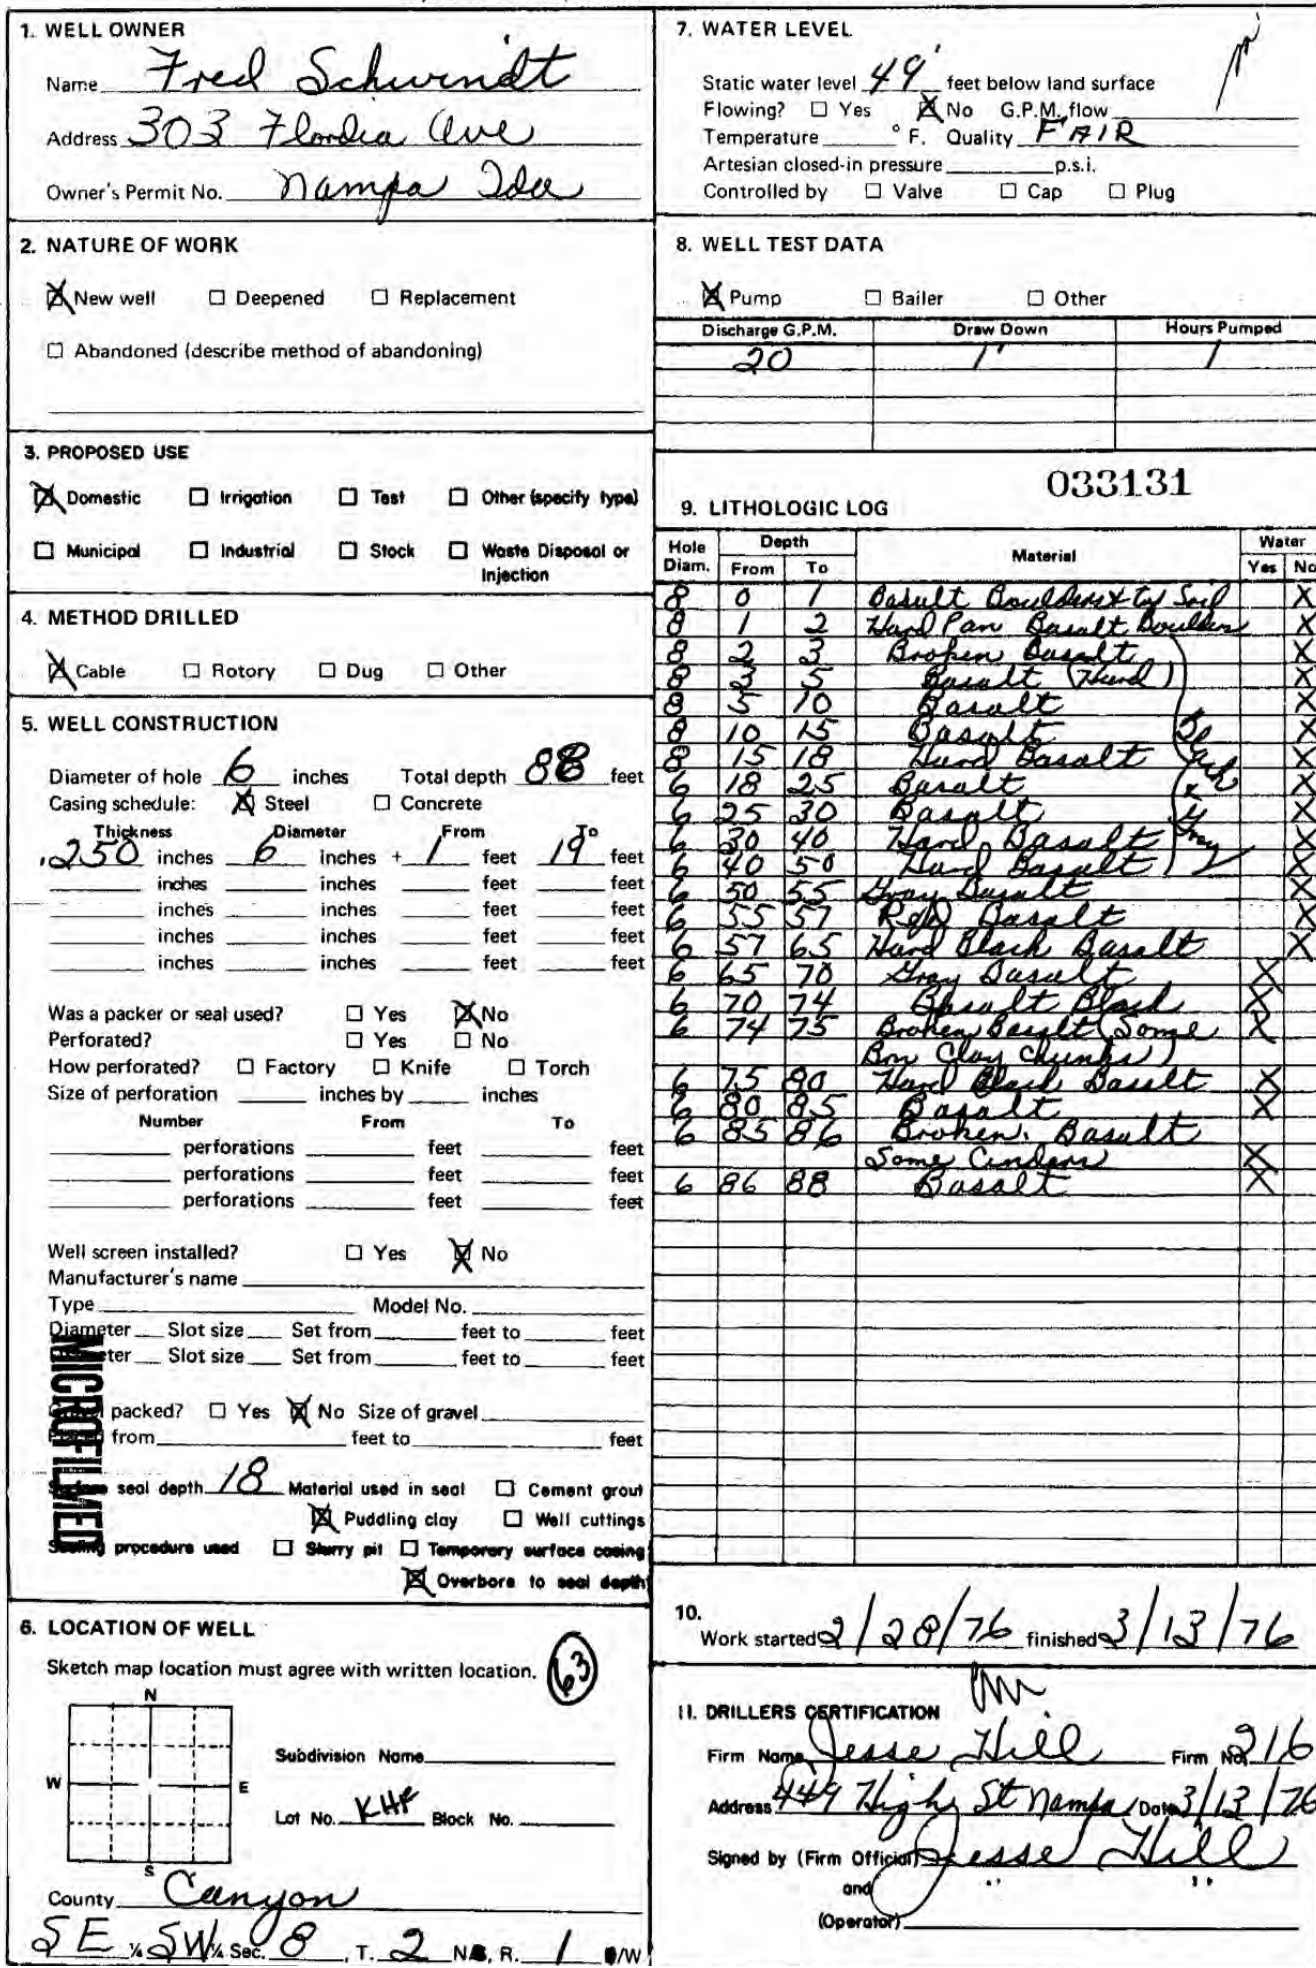 1. WELL OWNER
Name Fred Schwindt
Address 303 Flordia Ave
Owner's Permit No. Nampa Ida
2. NATURE OF WORK
New well Deepened Replacement
Abandoned (describe method of abandoning)
3. PROPOSED USE
Domestic Irrigation Test Other (specify type)
Municipal Industrial Stock Waste Disposal or
Injection
4. METHOD DRILLED
Cable Rotory Dug Other
5. WELL CONSTRUCTION
Diameter of hole 6 inches Total depth 88 feet
Casing schedule: Steel Concrete
Thickness Diameter From To
.250 inches 6 inches + 1 feet 19 feet
inches inches feet feet
inches inches feet feet
inches inches feet feet
inches inches feet feet
Was a packer or seal used? Yes No
Perforated? Yes No
How perforated? Factory Knife Torch
Size of perforation inches by inches
Number From To
perforations feet feet
perforations feet feet
perforations feet feet
Well screen installed? Yes No
Manufacturer's name
Type Model No.
Diameter Slot size Set from feet to feet
Slot size Set from feet to feet
packed? Yes No Size of gravel
from feet to feet
seal depth 18 Material used in seal Cement grout
Puddling clay Well cuttings
Sealing procedure used Slurry pit Temporary surface casing
Overbore to seal depth
MICROFILMED
6. LOCATION OF WELL
Sketch map location must agree with written location.
63
N
W E
S
Subdivision Name
Lot No. KHF Block No.
County Canyon
SE ¼ SW ¼ Sec. 8, T. 2 N, R. 1 /W
7. WATER LEVEL
Static water level 49' feet below land surface
Flowing? Yes No G.P.M. flow
Temperature ° F. Quality FAIR
Artesian closed-in pressure p.s.i.
Controlled by Valve Cap Plug
8. WELL TEST DATA
Pump Bailer Other
Discharge G.P.M. Draw Down Hours Pumped
20 1' 1
033131
9. LITHOLOGIC LOG
Hole Diam. Depth From To Material Water Yes No
8 0 1 Basult Boulders & top Soil X
8 1 2 Hard Pan Basalt Boulders X
8 2 3 Broken Basalt X
8 3 5 Basalt (Hard) X
8 5 10 Basalt X
8 10 15 Basalt X
8 15 18 Hard Basalt X
6 18 25 Basalt X
6 25 30 Basalt X
6 30 40 Hard Basalt X
6 40 50 Hard Basalt X
6 50 55 Gray Basalt X
6 55 57 Red Basalt X
6 57 65 Hard Black Basalt X
6 65 70 Gray Basult X
6 70 74 Basalt Black X
6 74 75 Broken Basalt (Some X
Brn Clay Chunks)
6 75 80 Hard Black Basalt X
6 80 85 Basalt X
6 85 86 Broken Basult
Some Cinders X
6 86 88 Basalt X
10.
Work started 2/28/76 finished 3/13/76
11. DRILLERS CERTIFICATION
Firm Name Jesse Hill Firm No. 216
Address 449 High St Nampa Date 3/13/76
Signed by (Firm Official) Jesse Hill
and " "
(Operator)